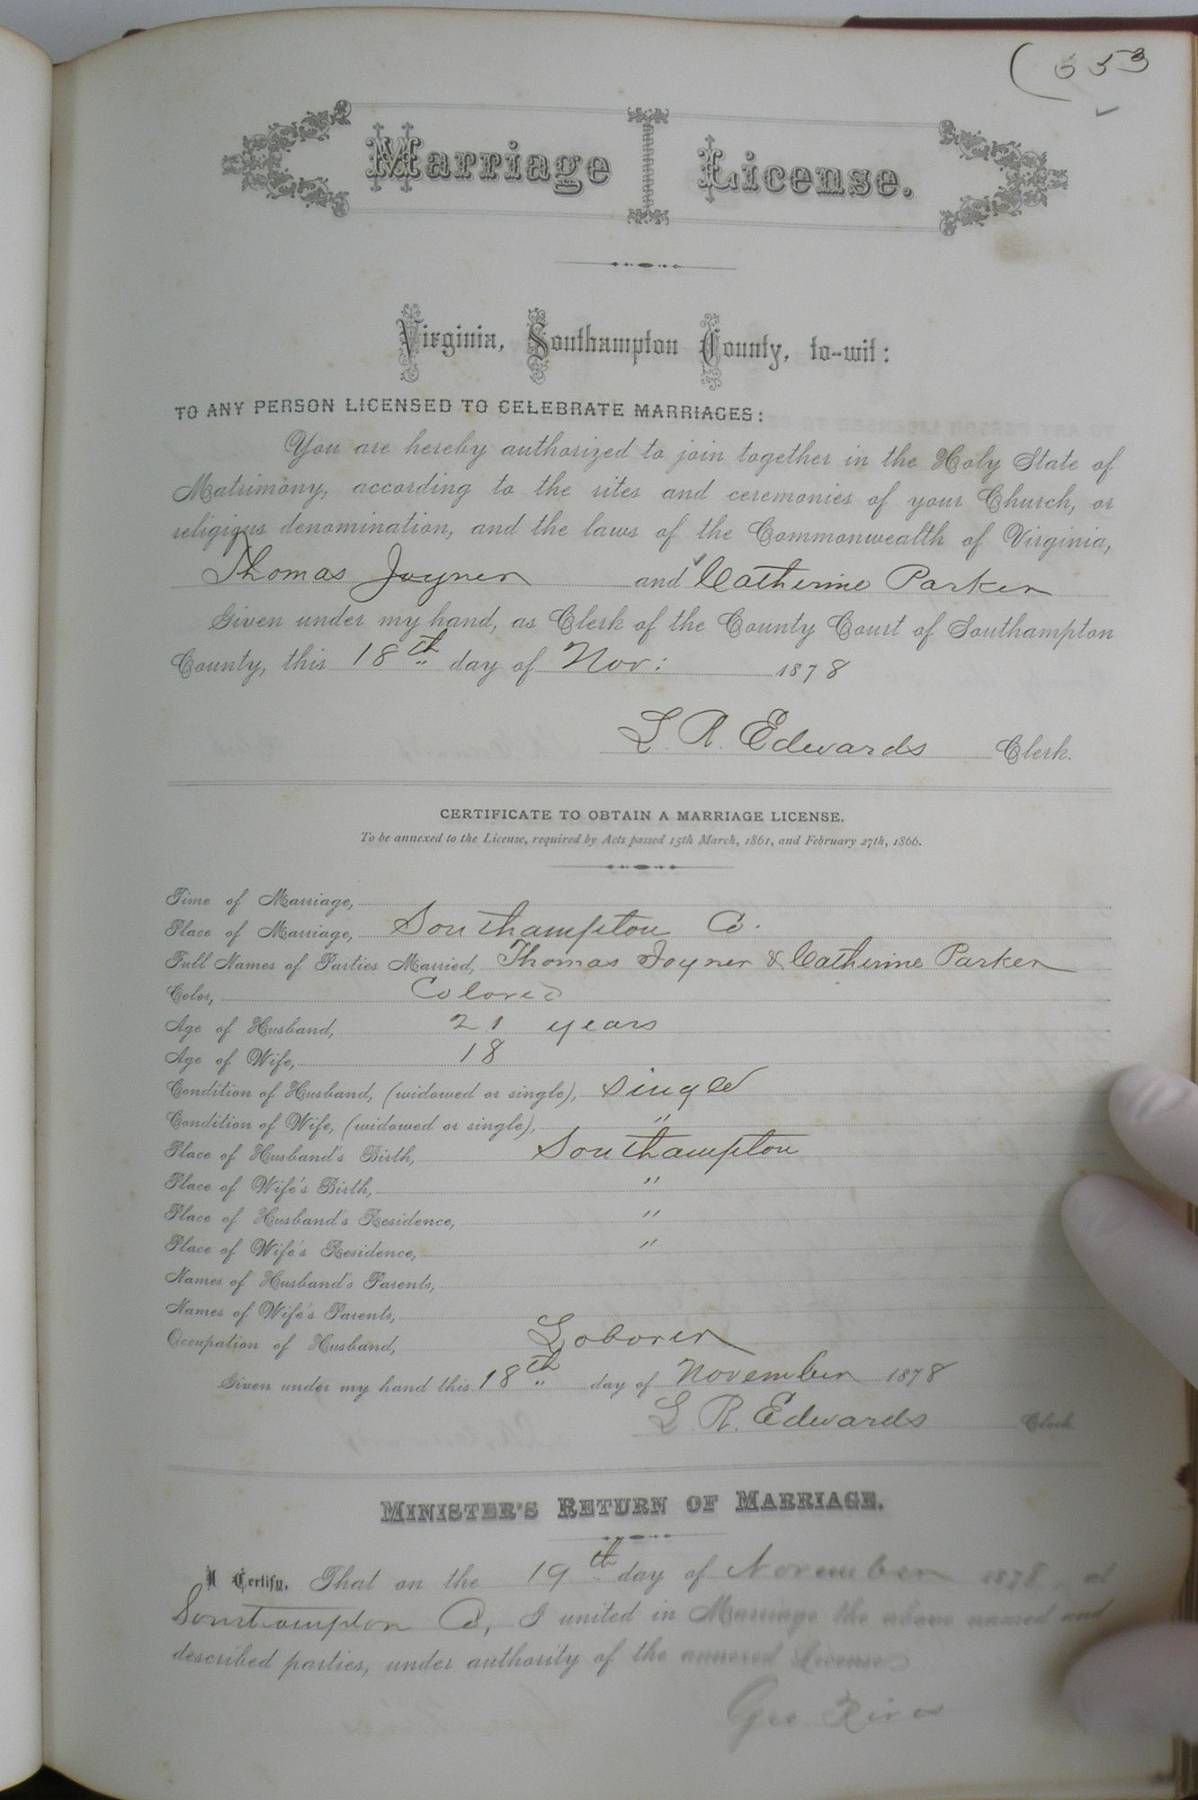 (353
Marriage License.
Virginia, Southampton County, to-wit:
TO ANY PERSON LICENSED TO CELEBRATE MARRIAGES:
You are hereby authorized to join together in the Holy State of
Matrimony, according to the rites and ceremonies of your Church, or
religious denomination, and the laws of the Commonwealth of Virginia,
Thomas Joyner and Catherine Parker
Given under my hand, as Clerk of the County Court of Southampton
County, this 18th day of Nov: 1878
L. R. Edwards Clerk.
CERTIFICATE TO OBTAIN A MARRIAGE LICENSE.
To be annexed to the License, required by Acts passed 15th March, 1861, and February 27th, 1866.
Time of Marriage,
Place of Marriage, Southampton Co.
Full Names of Parties Married, Thomas Joyner & Catherine Parker
Color, Colored
Age of Husband, 21 years
Age of Wife, 18
Condition of Husband, (widowed or single), single
Condition of Wife, (widowed or single), "
Place of Husband's Birth, Southampton
Place of Wife's Birth, "
Place of Husband's Residence, "
Place of Wife's Residence, "
Names of Husband's Parents,
Names of Wife's Parents,
Occupation of Husband, Laborer
Given under my hand this 18th day of November 1878
L. R. Edwards Clerk
MINISTER'S RETURN OF MARRIAGE.
I Certify, That on the 19th day of November 1878, at
Southampton Co, I united in Marriage the above named and
described parties, under authority of the annexed License
Geo